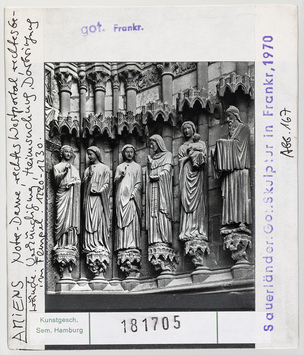 got. Frankr.
AMIENS Notre-Dame, rechtes Westportal, rechtes Ge-
wände: Verkündigung, Heimsuchung, Darbringung
im Tempel
Sauerländer: Got. Skulptur in Frankr, 1970
Abb. 167
Kunstgesch.
Sem. Hamburg
181705